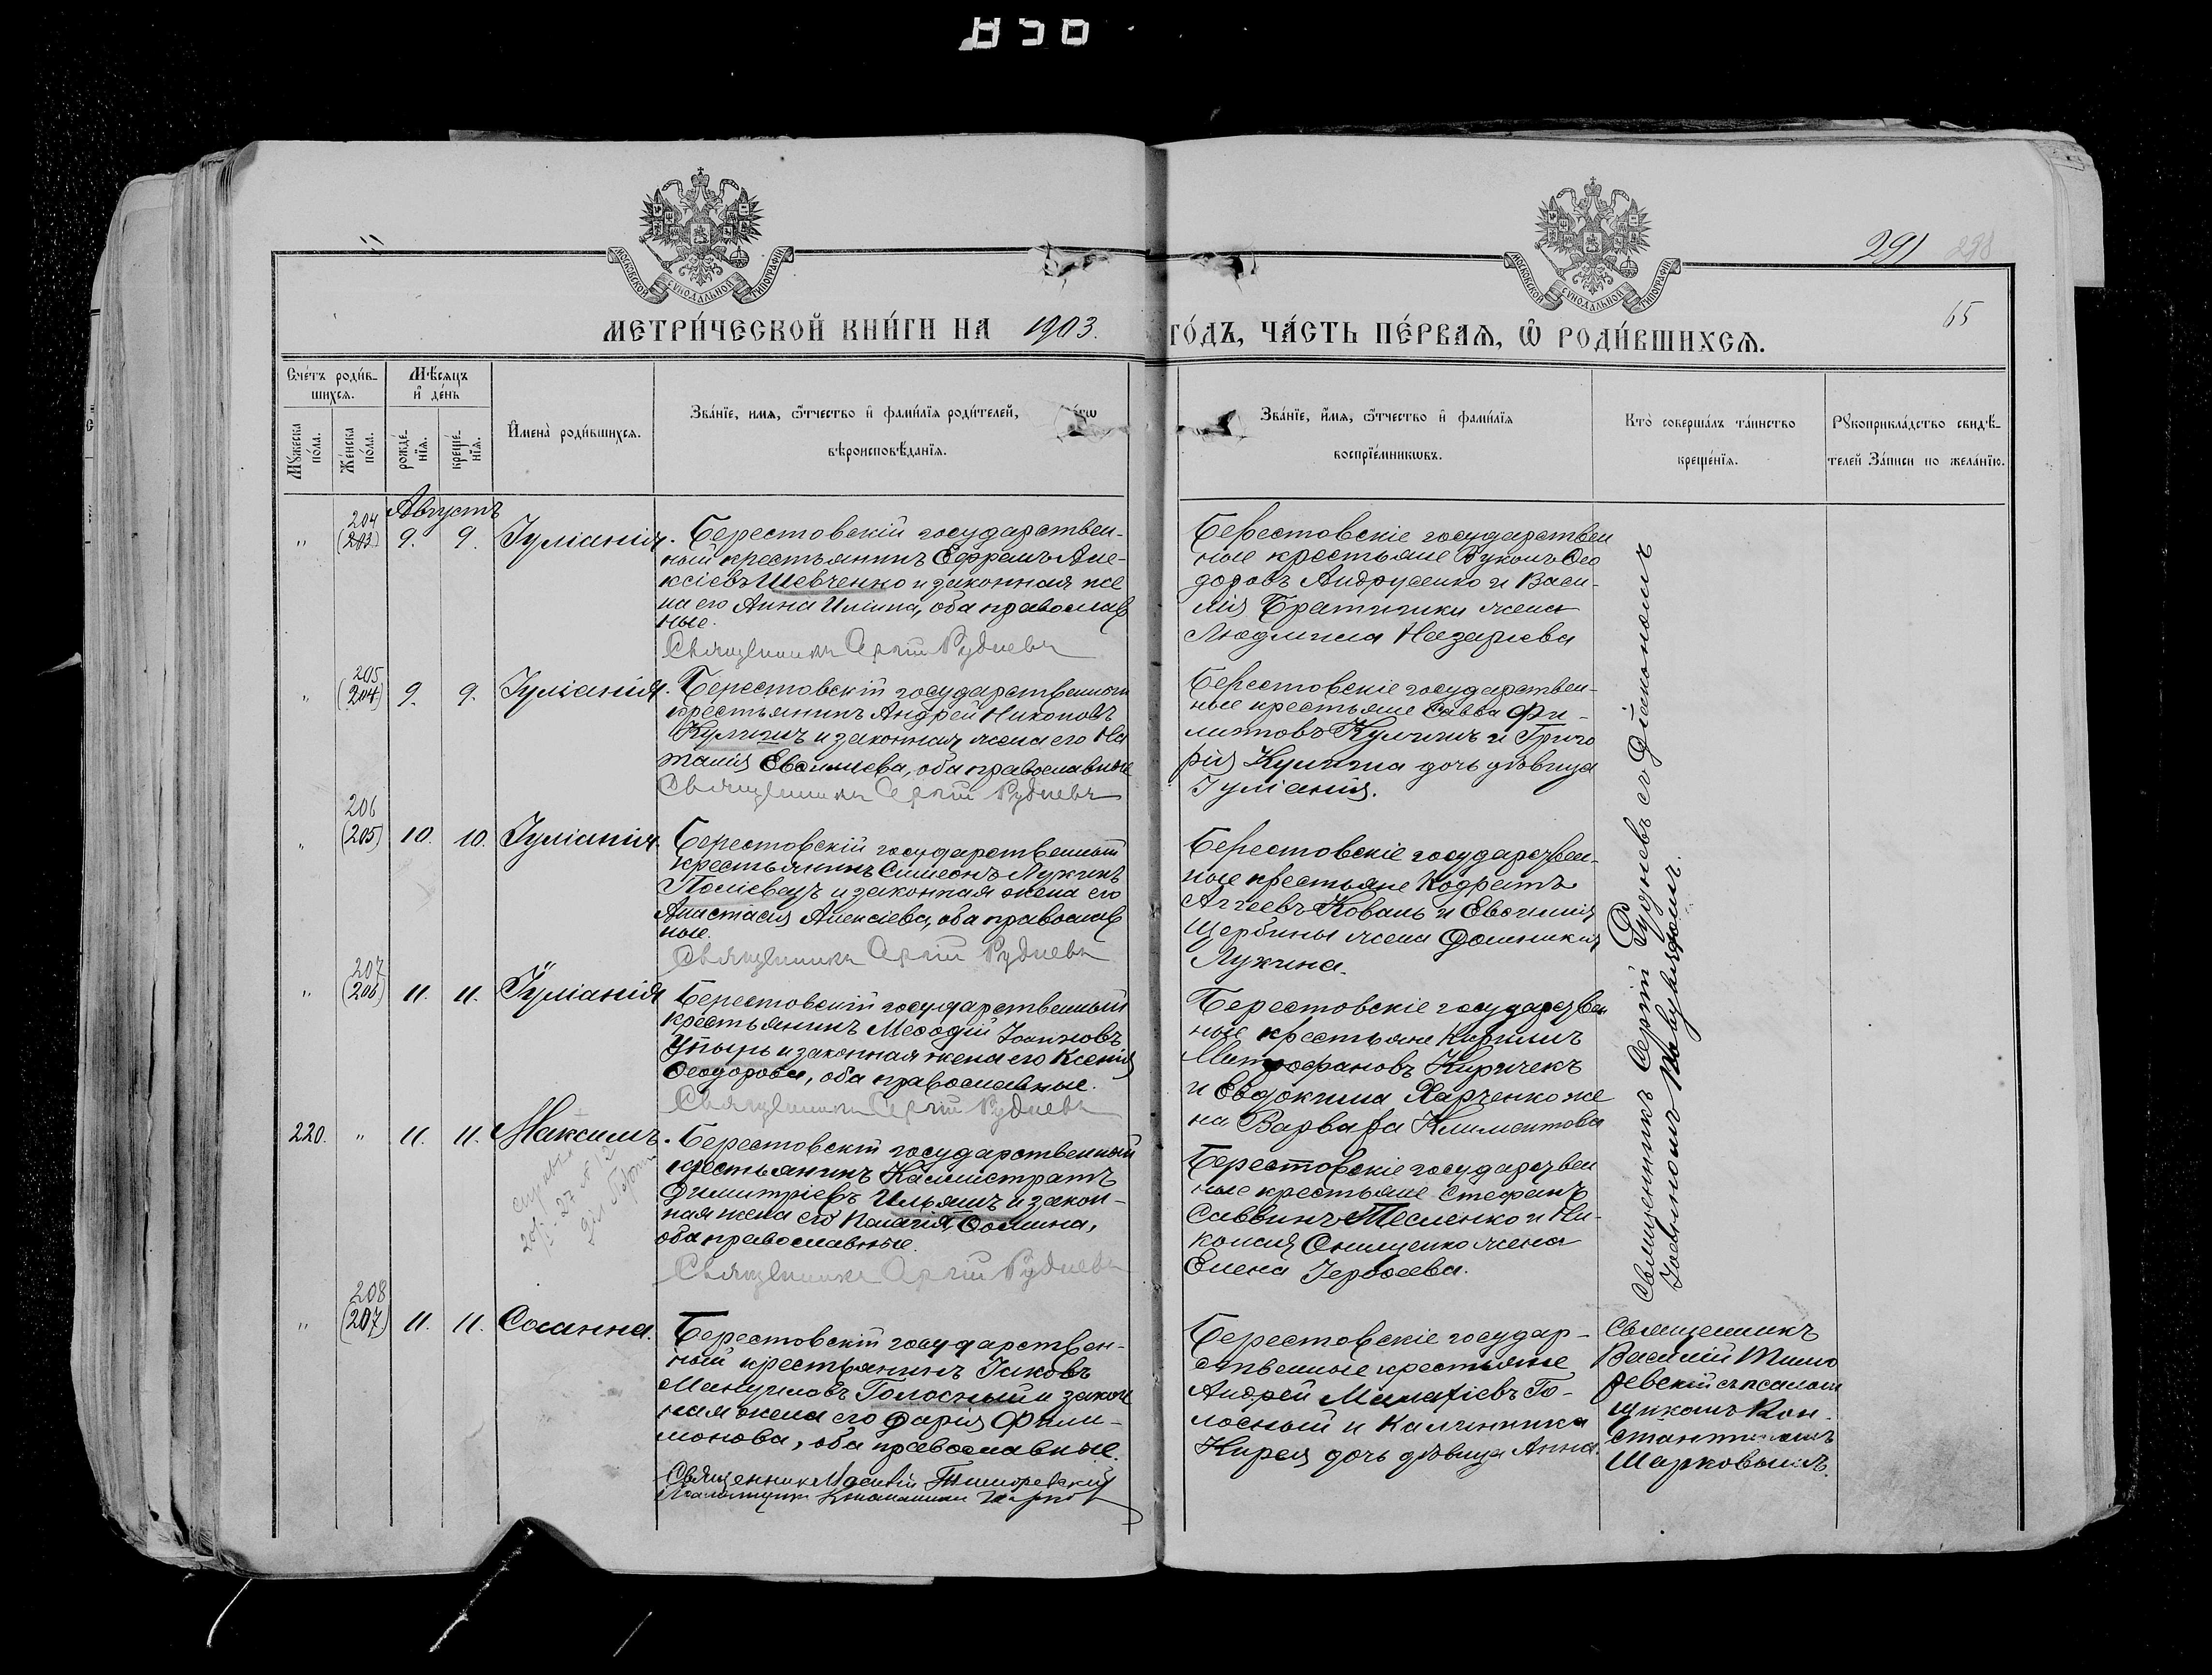 МОСКОВСКОЙ СѴНОДАЛЬНОЙ ТИПОГРАФІИ
МОСКОВСКОЙ СѴНОДАЛЬНОЙ ТИПОГРАФІИ
291 298
65
МЕТРИ́ЧЕСКОЙ КНИ́ГИ НА 1903. ГО́ДЪ, ЧА́СТЬ ПЕ́РВАЯ, Ѡ҆ РОДИ́ВШИХСЯ.
Сче́тъ роди́в-
шихся.
Мѣ́сяцъ
и҆ де́нь
Мꙋ́жеска
по́ла.
Же́нска
по́ла.
рожде́-
нїя.
креще́-
нїя.
И҆мена̀ роди́вшихся.
Зва́нїе, имя, ѻ҆́тчество и҆ фами́лїя роди́телей,
вѣроисповѣ́данїя.
Зва́нїе, и҆́мя, ѻ҆́тчество и҆ фами́лїя
воспрїе́мникѡвъ.
Кто̀ соверша́лъ та́инство
креще́нїя.
Рꙋкоприкла́дство свидѣ́-
телей за́писи по жела́нїю.
Августъ
" 204 (203) 9. 9. Іуліанія.
Берестовскій государствен-
ный крестьянинъ Ефремъ Але-
ксіевъ Шевченко и законная же
на его Анна Ильина, оба православ
ные.
Священникъ Сергій Рудневъ
Берестовскіе государствен
ные крестьяне Вуколъ Ѳео
доровъ Андрусенко и Васи-
лія Братишки жена
Людмила Назаріева
" 205 (204) 9. 9. Іуліанія.
Берестовскій государственный
крестьянинъ Андрей Никоновъ
Куличъ и законная жена его На
талія Евѳиміева, оба православные
Священникъ Сергій Рудневъ
Берестовскіе государствен-
ные крестьяне Савва Фи-
липповъ Куличъ и Григо
рія Кулича дочь дѣвица
Іуліанія.
" 206 (205) 10. 10. Іуліанія.
Берестовскій государственный
крестьянинъ Симеонъ Лукинъ
Поліевецъ и законная жена его
Анастасія Алексіева, оба православ
ные.
Священникъ Сергій Рудневъ
Берестовскіе государствен-
ные крестьяне Кодратъ
Аггеевъ Коваль и Евѳимія
Щербины жена Домникія
Лукина.
" 207 (206) 11. 11. Іуліанія
Берестовскій государственный
крестьянинъ Меѳодій Іоанновъ
Упырь и законная жена его Ксенія
Ѳеодорова, оба православные.
Священникъ Сергій Рудневъ
Берестовскіе государствен
ные крестьяне Кириллъ
Митрофановъ Киричекъ
и Евдокима Харченко же
на Варвара Климентова
220. " 11. 11. Максимъ.
Берестовскій государственный
крестьянинъ Каллистратъ
Димитріевъ Ильяшъ и закон-
ная жена его Пелагія Ѳомина,
оба православные.
Священникъ Сергій Рудневъ
Берестовскіе государствен
ные крестьяне Стефанъ
Саввинъ Тесленко и Ни-
колая Онищенко жена
Елена Гербасеева.
Священникъ Сергій Рудневъ съ діакономъ
Іоанномъ
" 208 (207) 11. 11. Сосанна.
Берестовскій государствен-
ный крестьянинъ Іаковъ
Мануиловъ Голосный и закон
ная жена его Дарія Фили-
монова, оба православные.
Священникъ Василій
Псаломщикъ Константинъ
Берестовскіе государ-
ственные крестьяне
Андрей Малахіевъ Го-
лосный и Каллиника
Кирея дочь дѣвица Анна.
Священникъ
Василій Тимо
ревскій съ псалом
щикомъ Кон-
стантиномъ
Шарковымъ.